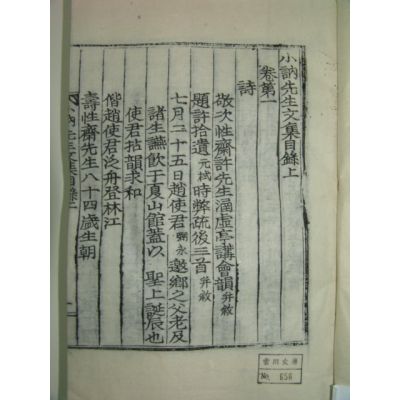 小訥先生文集目錄上
卷第一
詩
敬次性齋許先生涵虛亭講會韻幷敘
題許拾遺元栻時弊疏後三首幷敘
七月二十五日趙使君弼永邀鄕之父老及
諸生讌飮于夏山館蓋以 聖上誕辰也
使君拈韻求和
偕趙使君泛舟登林江
壽性齋先生八十四歲生朝
小訥先生文集目錄上 一
川文庫
No. 656